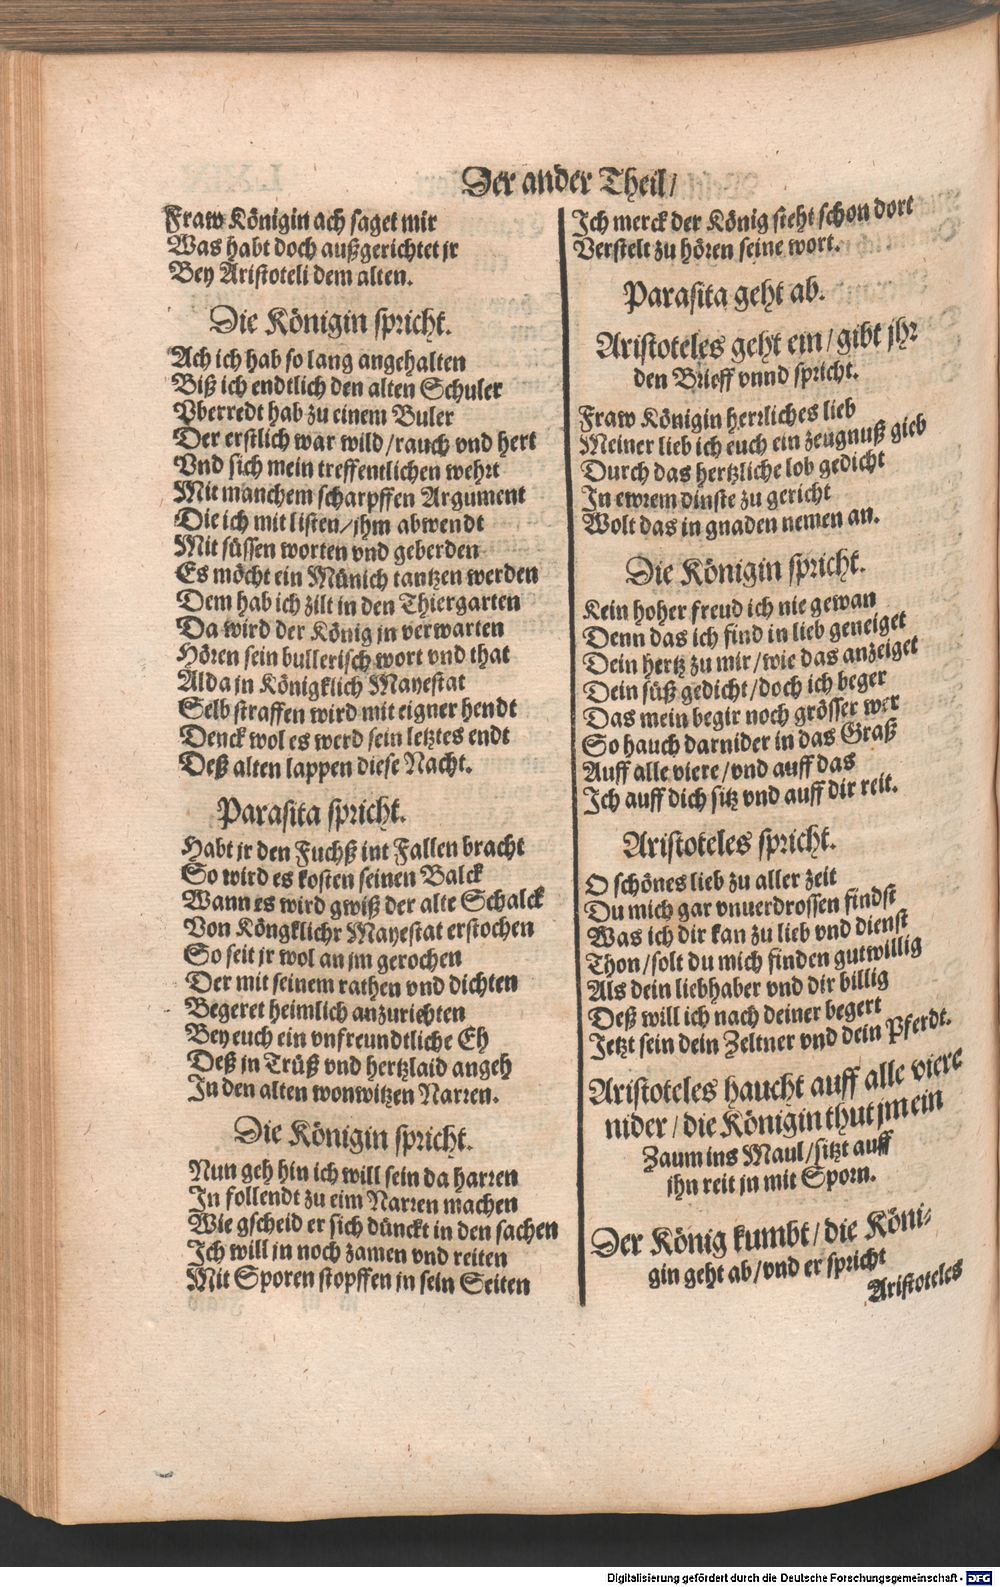 Der ander Theil/
Fraw Königin ach saget mir
Was habt doch außgerichtet jr
Bey Aristoteli dem alten.
Die Königin spricht.
Ach ich hab so lang angehalten
Biß ich endtlich den alten Schuler
Vberredt hab zu einem Buler
Der erstlich war wild/rauch vnd hert
Vnd sich mein treffentlichen wehrt
Mit manchem scharpffen Argument
Die ich mit listen/jhm abwendt
Mit süssen worten vnd geberden
Es möcht ein Münich tantzen werden
Dem hab ich zilt in den Thiergarten
Da wird der König jn verwarten
Hören sein bullerisch wort vnd that
Alda jn Königklich Mayestat
Selb straffen wird mit eigner hendt
Denck wol es werd sein letztes endt
Deß alten lappen diese Nacht.
Parasita spricht.
Habt jr den Fuchß int Fallen bracht
So wird es kosten seinen Balck
Wann es wird gwiß der alte Schalck
Von Köngklichr Mayestat erstochen
So seit jr wol an jm gerochen
Der mit seinem rathen vnd dichten
Begeret heimlich anzurichten
Bey euch ein vnfreundtliche Eh
Deß jn Trüß vnd hertzlaid angeh
In den alten wonwitzen Narren.
Die Königin spricht.
Nun geh hin ich will sein da harren
In follendt zu eim Narren machen
Wie gscheid er sich dünckt in den sachen
Ich will jn noch zamen vnd reiten
Mit Sporen stopffen jn sein Seiten
Ich merck der König steht schon dort
Verstelt zu hören seine wort.
Parasita geht ab.
Aristoteles geht ein/gibt jhr
den Brieff vnnd spricht.
Fraw Königin herrliches lieb
Meiner lieb ich euch ein zeugnuß gieb
Durch das hertzliche lob gedicht
In ewrem dinste zu gericht
Wolt das in gnaden nemen an.
Die Königin spricht.
Kein hoher freud ich nie gewan
Denn das ich find in lieb geneiget
Dein hertz zu mir/wie das anzeiget
Dein süß gedicht/doch ich beger
Das mein begir noch grösser wer
So hauch darnider in das Graß
Auff alle viere/vnd auff das
Ich auff dich sitz vnd auff dir reit.
Aristoteles spricht.
O schönes lieb zu aller zeit
Du mich gar vnuerdrossen findst
Was ich dir kan zu lieb vnd dienst
Thon/solt du mich finden gutwillig
Als dein liebhaber vnd dir billig
Deß will ich nach deiner begert
Jetzt sein dein Zeltner vnd dein Pferdt.
Aristoteles haucht auff alle viere
nider/die Königin thut jm ein
Zaum ins Maul/sitzt auff
jhn reit jn mit Sporn.
Der König kumbt/die Köni-
gin geht ab/vnd er spricht
Aristoteles
Digitalisierung gefördert durch die Deutsche Forschungsgemeinschaft - DFG